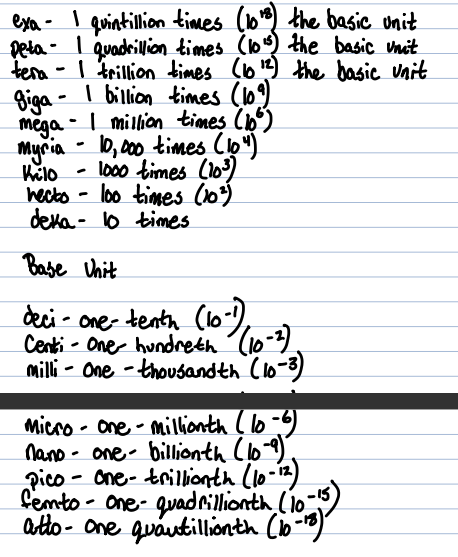 exa - 1 quintillion times (10^18) the basic unit
peta - 1 quadrillion times (10^15) the basic unit
tera - 1 trillion times (10^12) the basic unit
giga - 1 billion times (10^9)
mega - 1 million times (10^6)
myria - 10,000 times (10^4)
Kilo - 1000 times (10^3)
hecto - 100 times (10^2)
deka - 10 times
Base Unit
deci - one-tenth (10^-1)
Centi - One-hundreth (10^-2)
milli - One-thousandth (10^-3)
micro - one-millionth (10^-6)
Nano - one-billionth (10^-9)
pico - one-trillionth (10^-12)
femto - one-quadrillionth (10^-15)
atto - one quautillionth (10^-18)